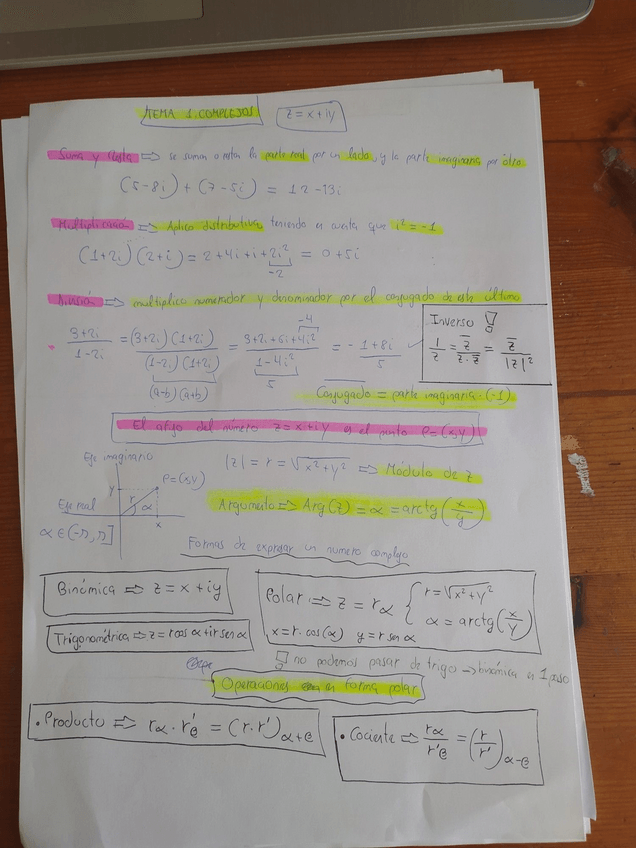 TEMA 1. COMPLEJOS z = x+iy
Suma y Resta ⇒ se suman o restan la parte real por un lado, y la parte imaginaria por otro.
(5-8i) + (7-5i) = 12-13i
Multiplicación ⇒ Aplico distributiva teniendo en cuenta que i² = -1
(1+2i) (2+i) = 2+4i+i+2i² = 0+5i
-2
División ⇒ multiplico numerador y denominador por el conjugado de este último
3+2i / 1-2i = (3+2i)(1+2i) / (1-2i)(1+2i) = 3+2i+6i+4i² / 1-4i² = -1+8i / 5
-4
5
(a-b)(a+b)
Inverso
1/z = z̄ / z·z̄ = z̄ / |z|²
Conjugado = parte imaginaria·(-1)
El afijo del número z = x+iy es el punto P=(x,y)
Eje imaginario
P=(x,y)
y
r
α
Eje real
x
α∈(-π,π]
|z| = r = √x²+y² ⇒ Módulo de z
Argumento ⇒ Arg(z) = α = arctg(x/y)
Formas de expresar un numero complejo
Binómica ⇒ z = x+iy
Trigonométrica ⇒ z = r cos α + i r sen α
Polar ⇒ z = rα { r = √x²+y²
α = arctg(x/y)
x = r·cos(α) y = r sen α
no podemos pasar de trigo → binómica en 1 paso
Operaciones en forma polar
• Producto ⇒ rα · r'β = (r·r')α+β
• Cociente ⇒ rα / r'β = (r/r')α-β